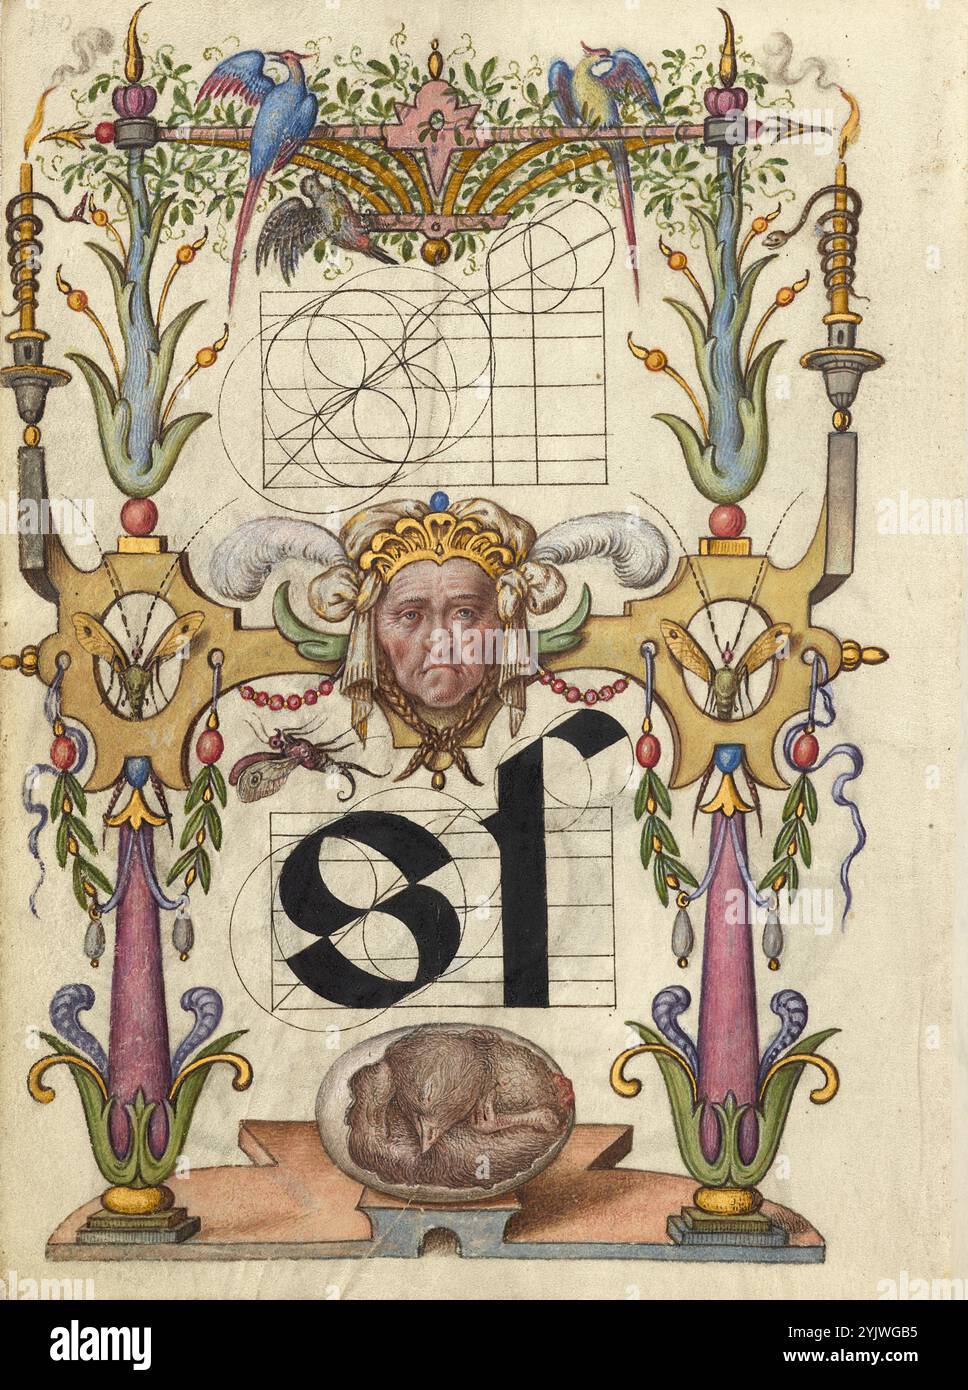 sſ
alamy
Image ID: 2YJWGB5
www.alamy.com